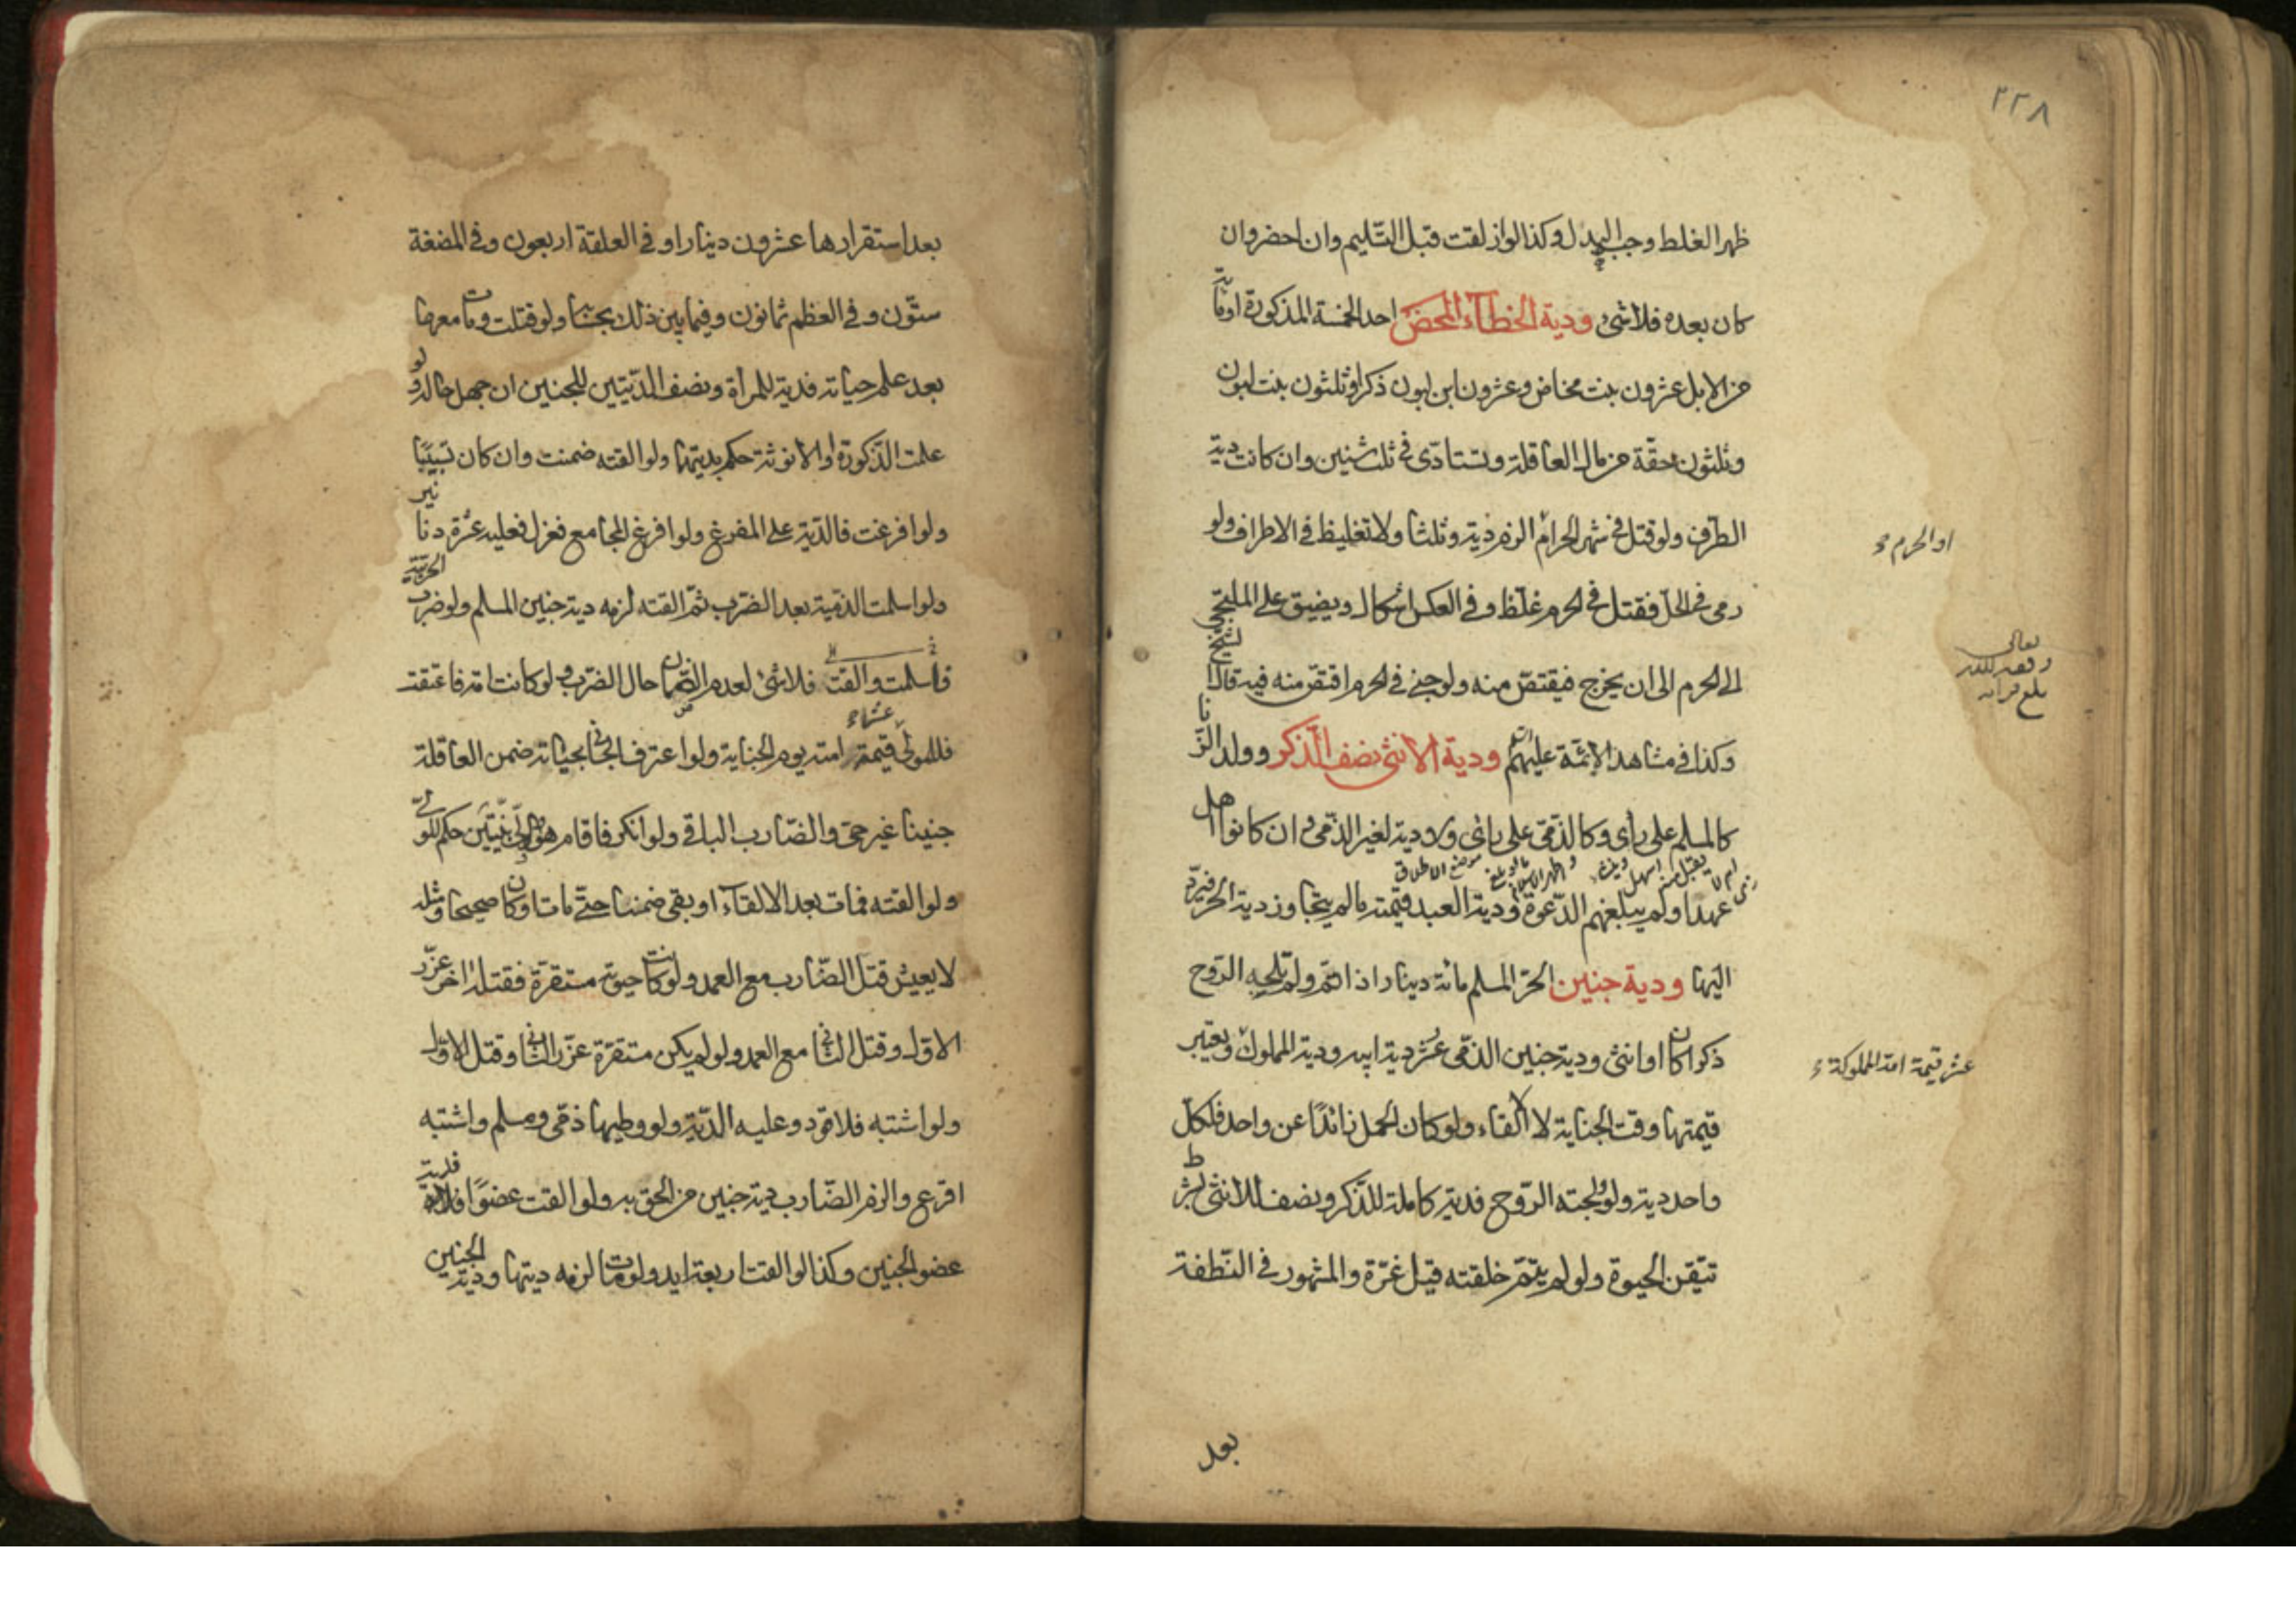 ٢٢٨
ظهر الغلط وجب البدل وكذا لو ازلقت قبل التسليم وان احضر وان
كان بعده فلا شئ ودية الخطاء المحض احد الخمسة المذكورة او مائة
من الابل عشرون بنت مخاض وعشرون ابن لبون ذكرا وثلثون بنت لبون
وثلثون حقة من مال العاقلة وتستادى فى ثلث سنين وان كانت دية
الطرف ولو قتل فى شهر الحرام الزم دية وثلثا ولا تغليظ فى الاطراف ولو
او الحرم
رمى فى الحل فقتل فى الحرم غلظ وفى العكس اشكال ويضيق على الملتجى
الى الحرم الى ان يخرج فيقتص منه ولو جنى فى الحرم اقتص منه فيه قال الشيخ
وكذا فى مشاهد الائمة عليهم ودية الانثى نصف الذكر وولد الزنا
كالمسلم على راى وكالذمى على راى ولا دية لغير الذمى وان كانوا اهل
عهد او لم يبلغهم الدعوة ودية العبد قيمته ما لم يتجاوز دية الحر فيرد
اليها ودية جنين الحر المسلم مائة دينار اذا تم ولم تلجه الروح
ذكرا كان او انثى ودية جنين الذمى عشر دية ابيه ودية المملوك ويعتبر
عشر قيمة امه المملوكة
قيمتها وقت الجناية لا الالقاء ولو كان الحمل زائدا عن واحد فلكل
واحد دية ولو ولجته الروح فدية كاملة للذكر ونصف للانثى بشرط
تيقن الحيوة ولو لم يتم خلقته قيل غرة والمشهور فى النطفة
بعد
بعد استقرارها عشرون دينارا وفى العلقة اربعون وفى المضغة
ستون وفى العظم ثمانون وفيما بين ذلك بحسابه ولو قتلت ومات معها
بعد علم حياته فدية للمراة ونصف الديتين للجنين ان جهل حاله ولو
علمت الذكورة او الانوثة حكم بديتها ولو القته ضمنت وان كان تسبيبا
ولو افزعت فالدية على المفزع ولو افزع المجامع فعزل فعليه عشرة دنانير
ولو اسلمت الذمية بعد الضرب ثم القته لزمه دية جنين المسلم ولو ضرب الحربية
فاسلمت والقت فلا شئ لعدم الضمان حال الضرب ولو كانت امة فاعتقت
فللمولى عشر قيمة امته يوم الجناية ولو اعترف الجانى بجنايته ضمن العاقلة
جنينا غير حى والضارب الباقى ولو انكر فاقام هو والولى بينتين حكم للولى
ولو القته فمات بعد الالقاء او بقى ضمنا حتى مات او كان صحيحا ومثله
لا يعيش قتل الضارب مع العمد ولو كانت حيوته مستقرة فقتله اخر عزر
الاول وقتل الثانى مع العمد ولو لم يكن مستقرة عزر الثانى وقتل الاول
ولو اشتبه فلا قود وعليه الدية ولو وطيها ذمى ومسلم واشتبه
اقرع والزم الضارب بدية جنين من الحق به ولو القت عضوا فلدية
عضو الجنين وكذا لو القت اربعة ايد ولو مات لزمه ديتها ودية الجنين